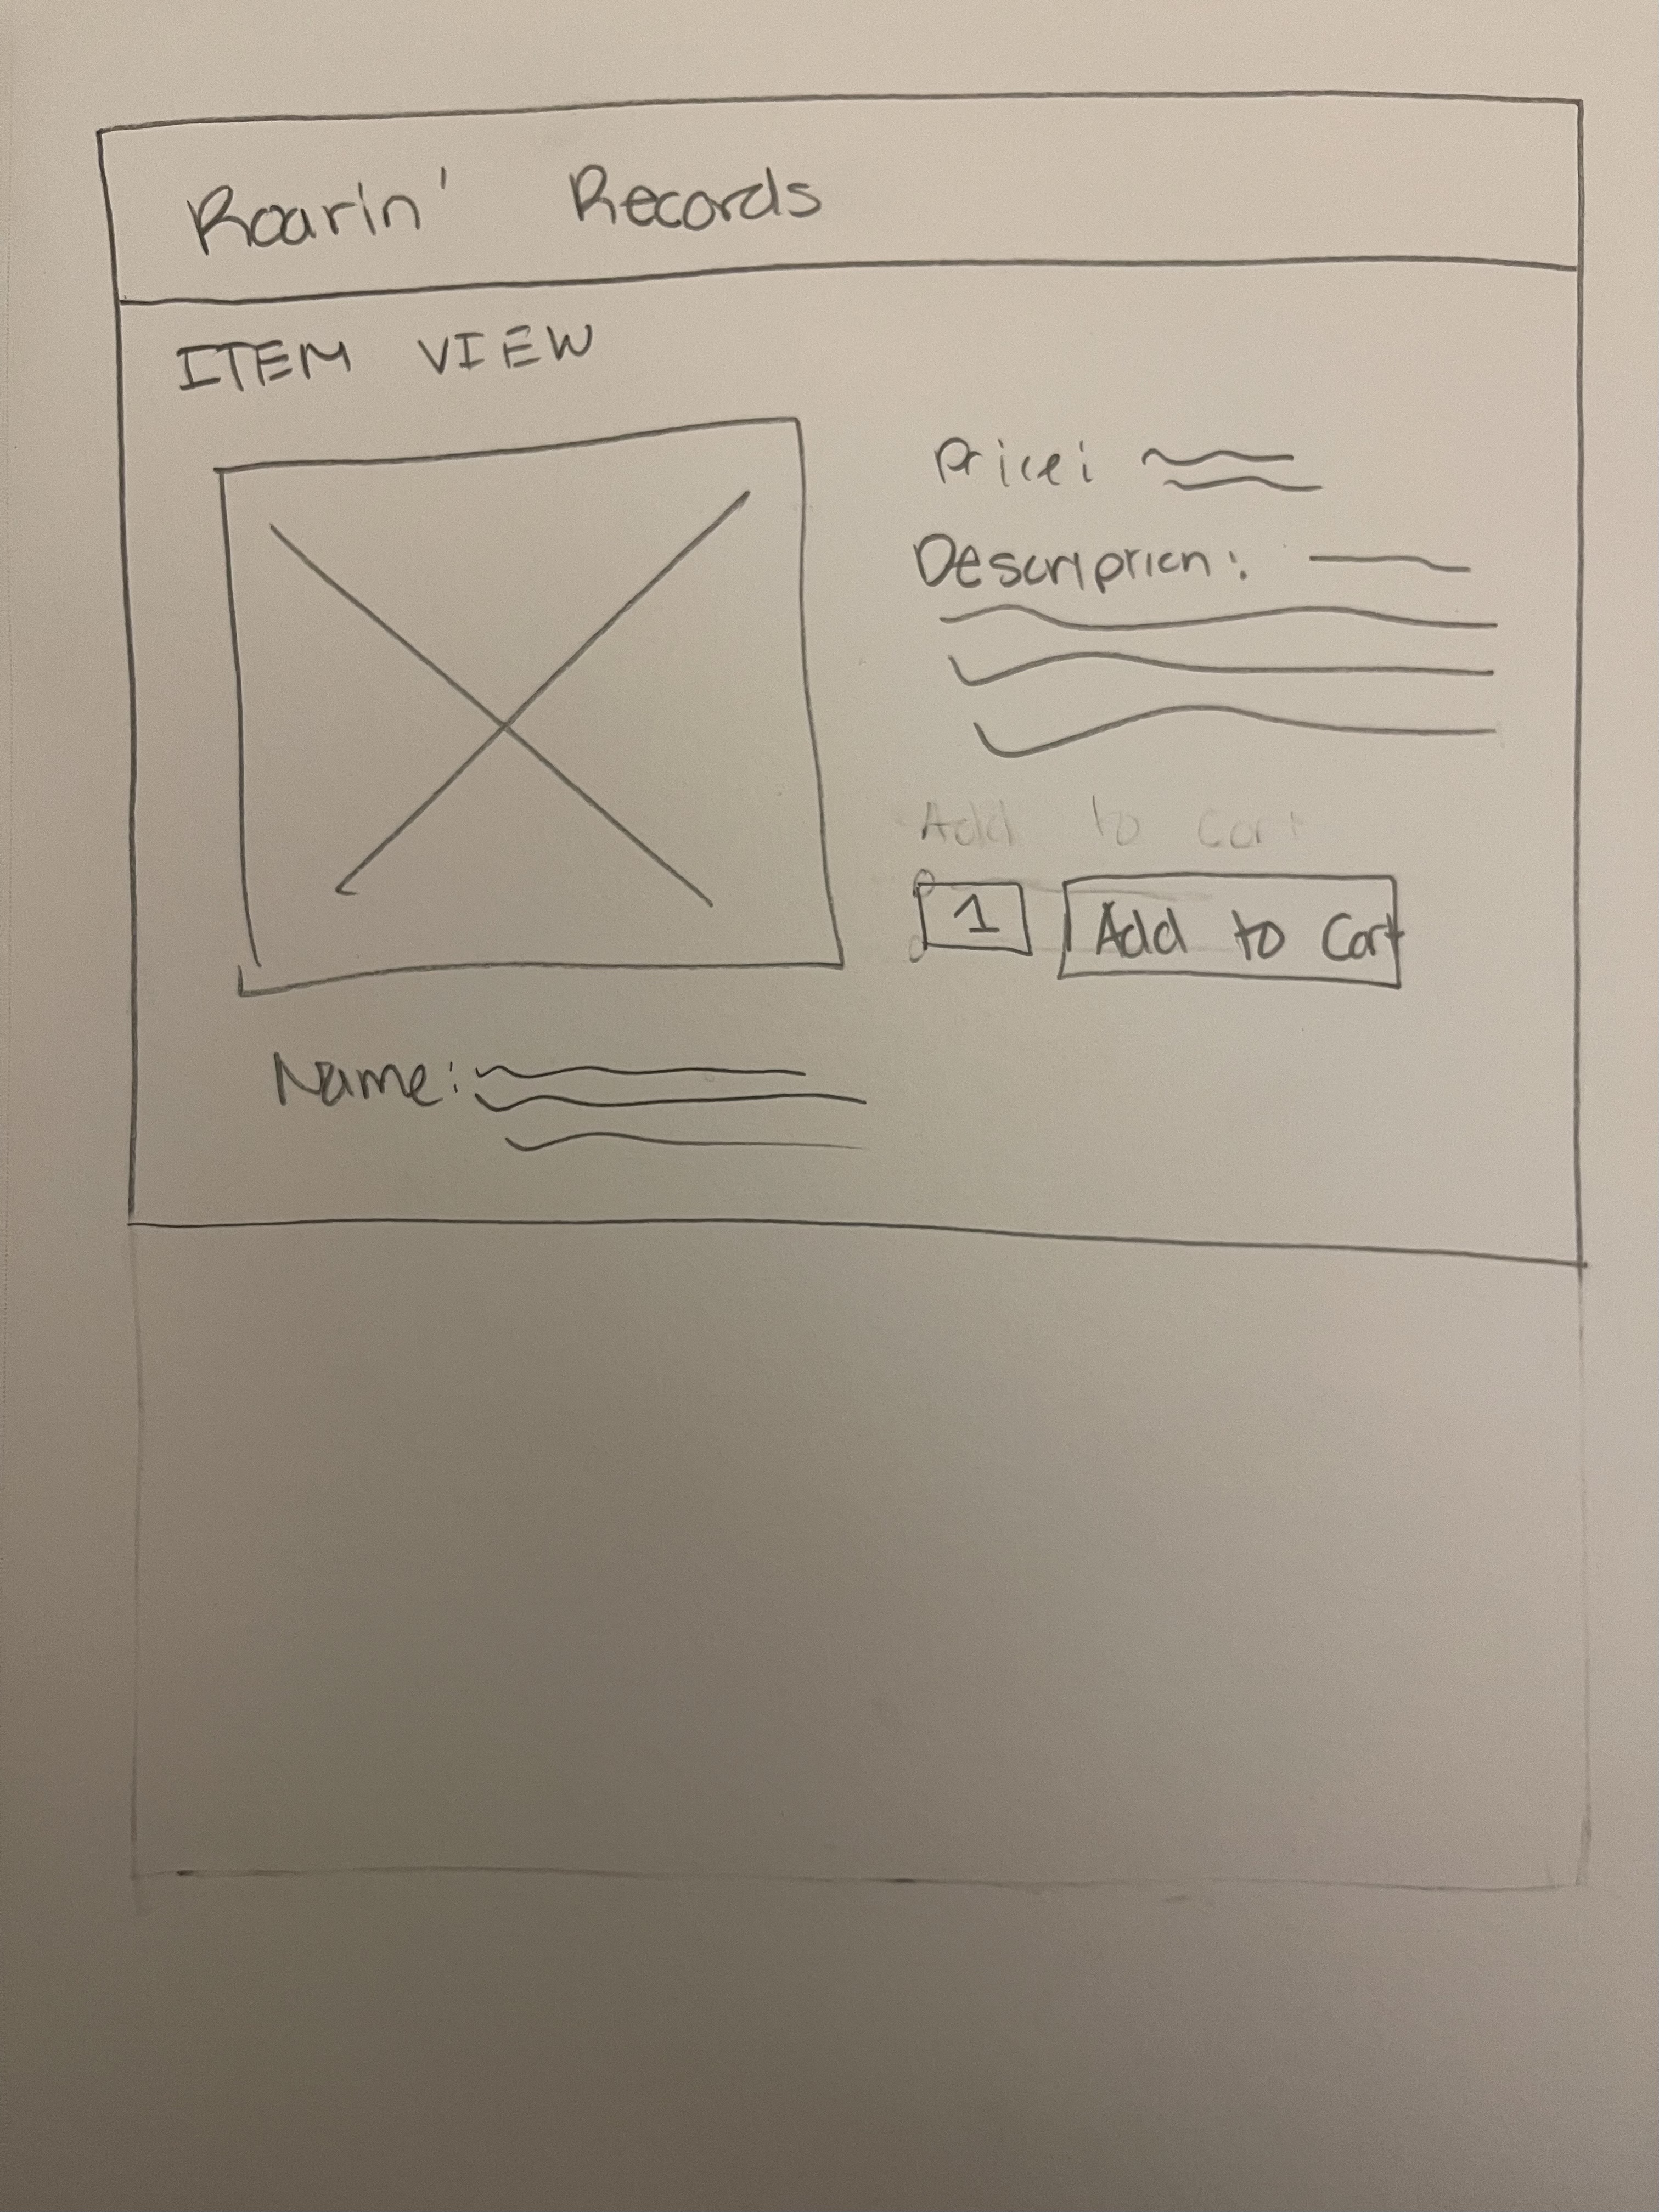 Roarin' Records
ITEM VIEW
Price:
Description:
Add to Cart
1 Add to Cart
Name: